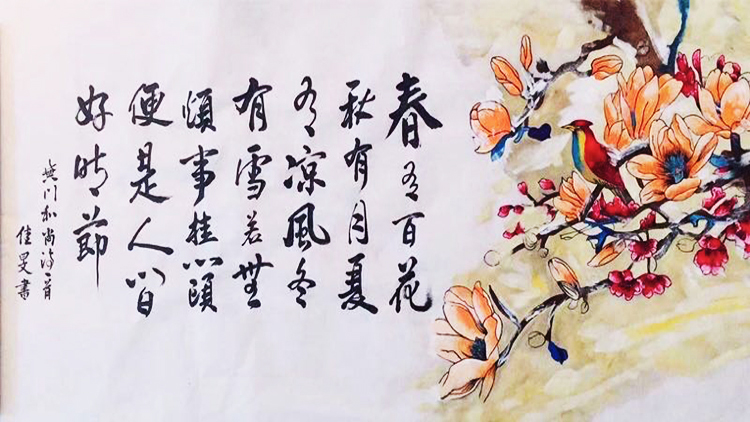 春有百花
秋有月夏
有凉風冬
有雪若無
煩事挂心頭
便是人间
好时節
無门和尚诗一首
佳旻書